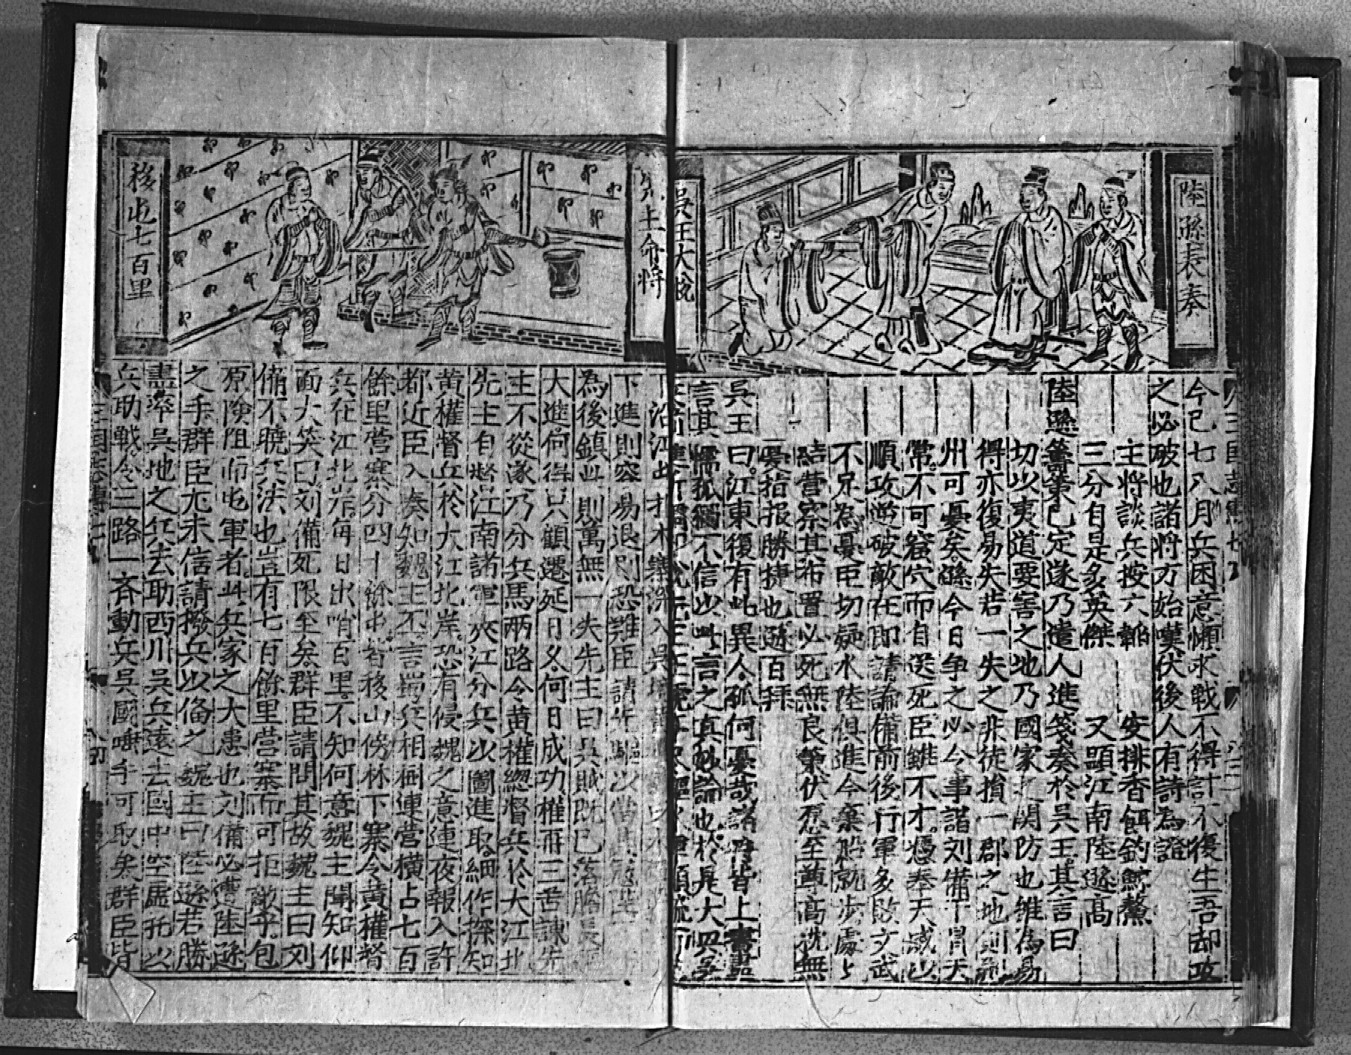 陸遜表奏
吳王大悅
今已七八月兵困意懶求戰不得計不復生吾却攻
之必破也諸將方始嘆伏後人有詩為證
主將談兵按六韜 安排香餌釣鯨鰲
三分自是多英傑 又顯江南陸遜高
陸遜籌策已定遂乃遣人進箋奏於吳王其言曰
切以夷道要害之地乃國家之關防也雖為易
得亦復易失若一失之非徒損一郡之地則荊
州可憂矣遜今日爭之必令事諧劉備干冒天
常不可窟穴而自送死臣雖不才憑奉天威以
順攻逆破敵在即請論備前後行軍多敗
不足為憂臣切疑水陸俱進今棄船就步處々
結營察其布置必死無良策伏惟至尊高枕無
憂指報勝捷也遜百拜
吳王曰江東復有此異人孤何憂哉諸將皆上書盡
言其懦孤獨不信以此言之真妙論也於是大興吳
先主命將
移屯七百里
下進則容易退則恐難臣請先驅以當
為後鎮此則萬無一失先主曰吳賊既已落膽長
大進何得只顧遷延日久何日成功權再三苦諫先
主不從遂乃分兵馬兩路今黃權總督兵於大江北
先主自督江南諸軍夾江分兵以圖進取細作探知
黃權督兵於大江北岸恐有侵魏之意連夜報入許
都近臣入奏知魏主丕言蜀兵相綑連營橫占七百
餘里營寨分四十餘屯皆移山傍林下寨令黃權督
兵在江北岸每日出哨百里不知何意魏主聞知仰
面大笑曰劉備死限至矣群臣請問其故魏主曰刘
備不曉兵法也豈有七百餘里營寨而可拒敵乎包
原險阻而屯軍者此兵家之大患也刘備必遭陸遜
之手群臣尤未信請撥兵以備之魏主曰陸遜若勝
盡率吳地之兵去助西川吳兵遠去國中空虛托以
兵助戰令三路一齊動兵吳國唾手可取矣群臣皆